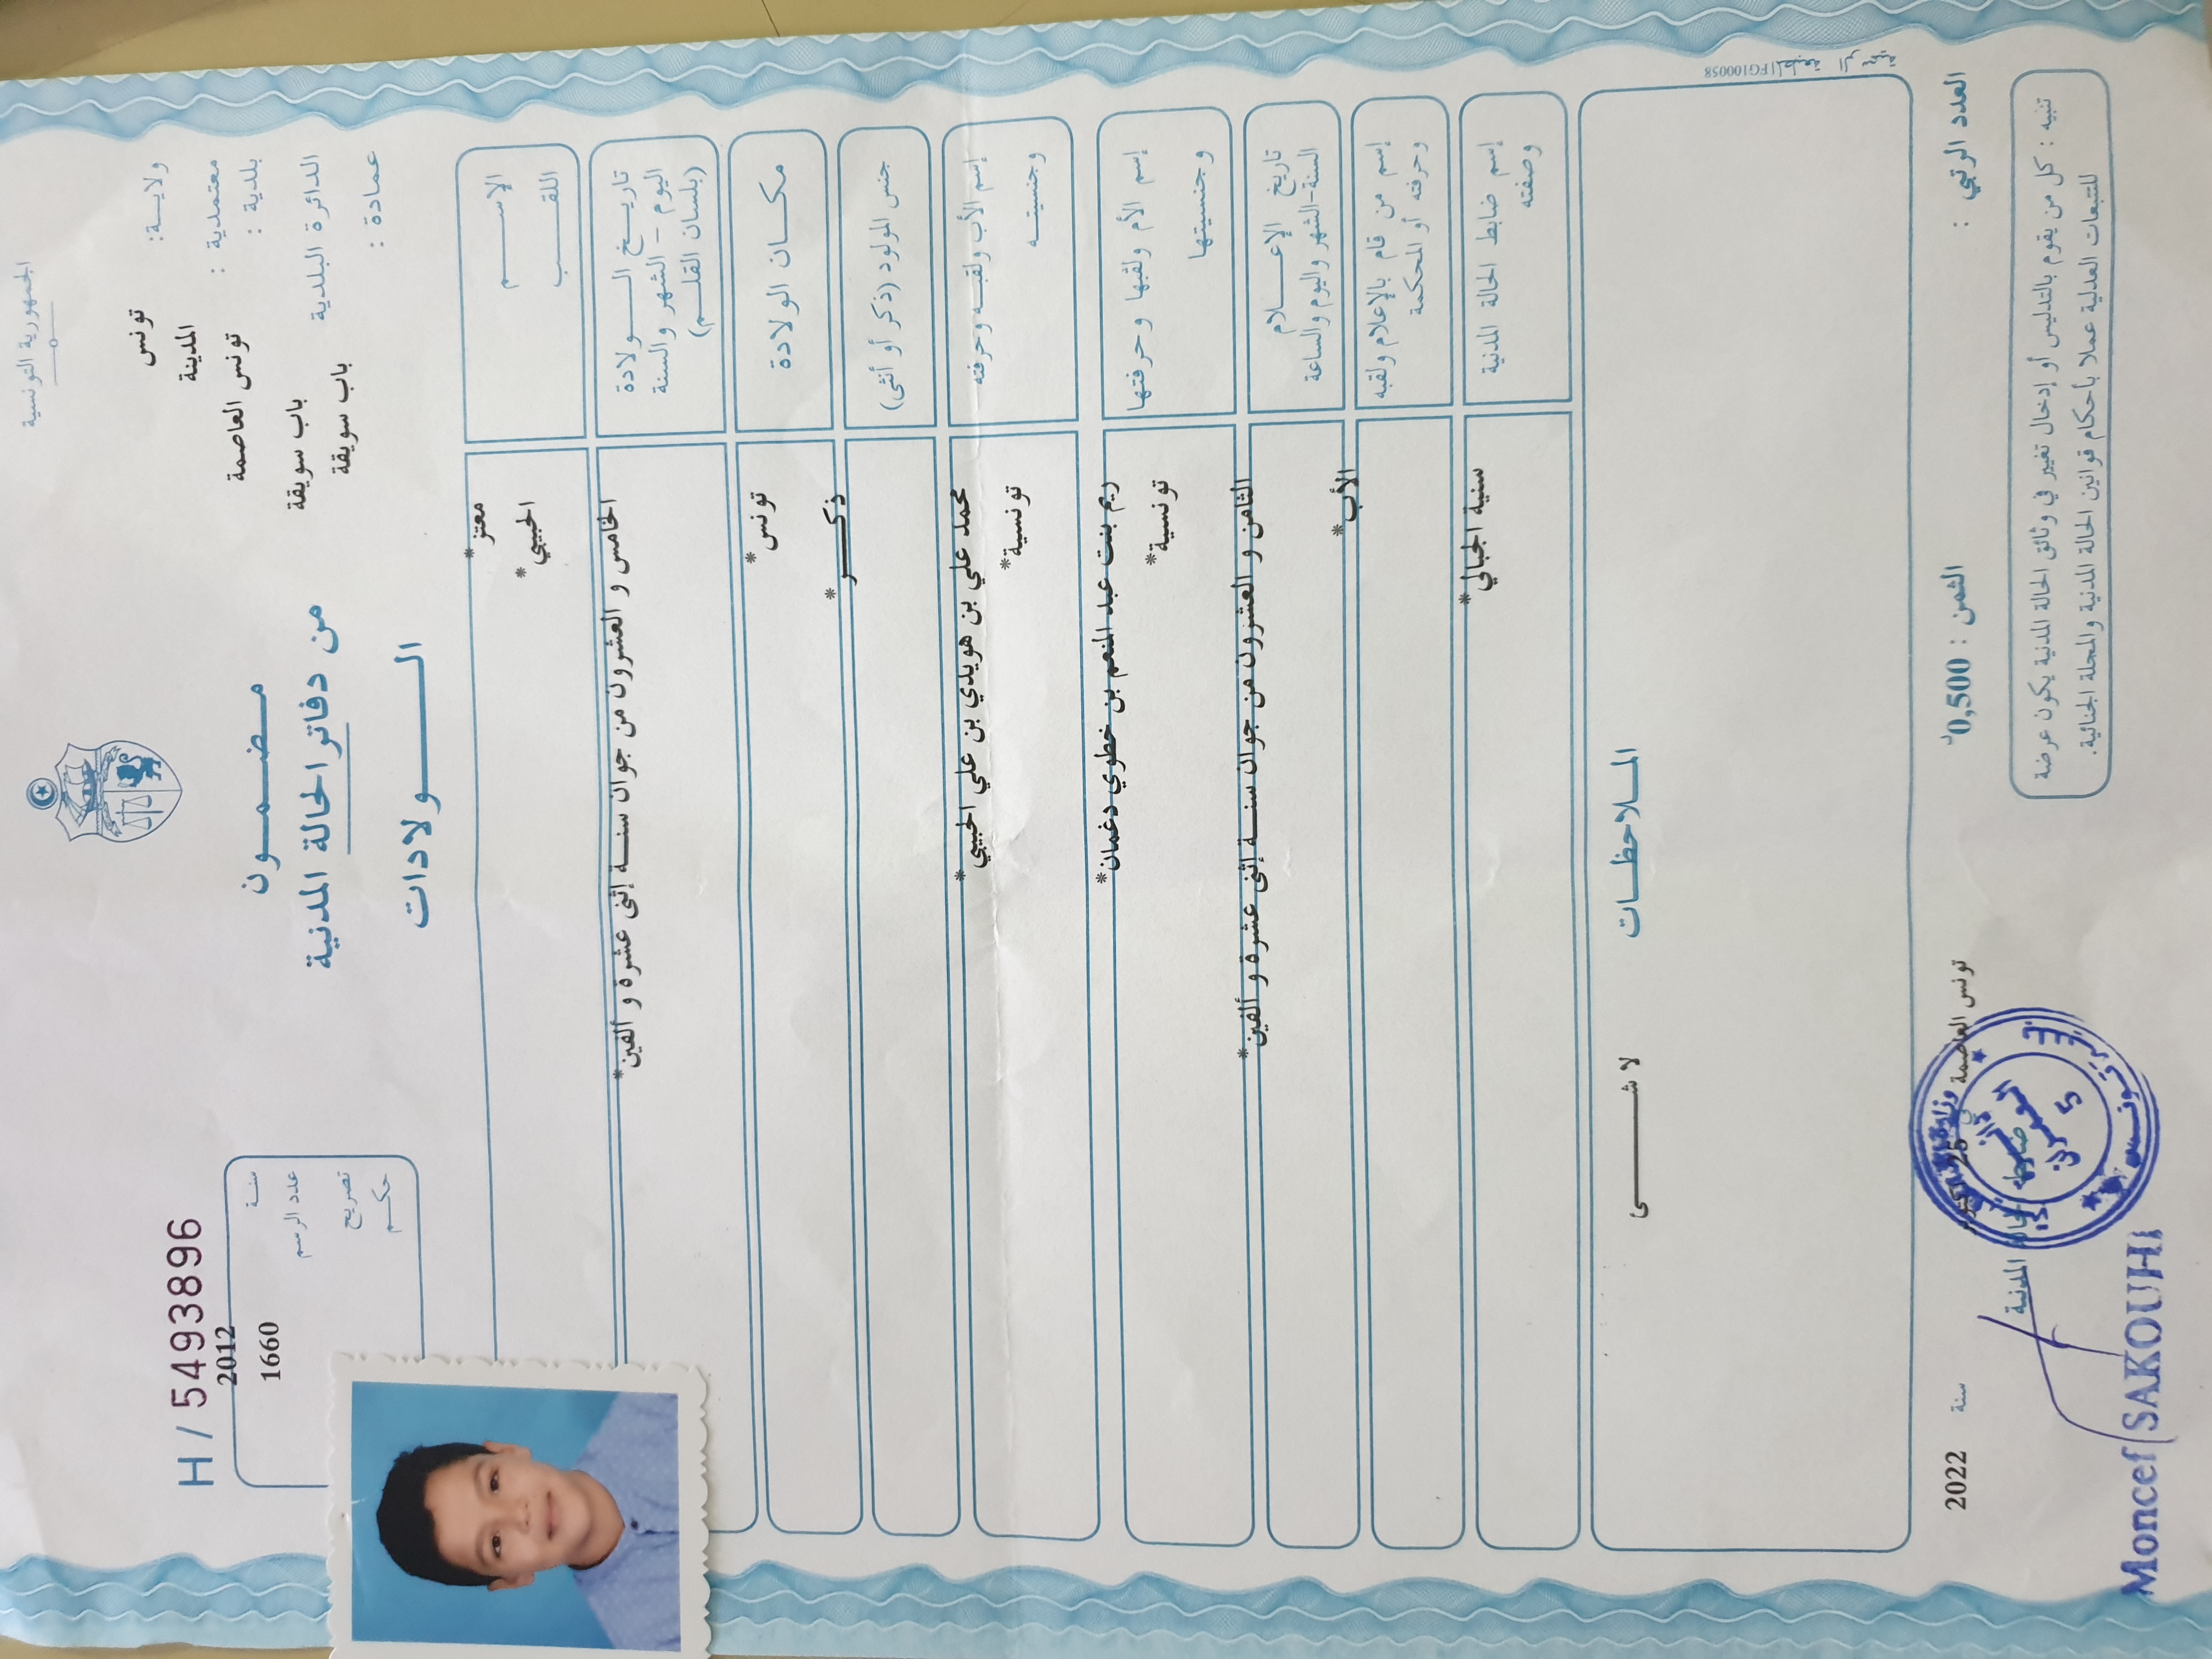 الجمهورية التونسية
ولاية: تونس
معتمدية : المدينة
بلدية : تونس العاصمة
الدائرة البلدية باب سويقة
عمادة : باب سويقة
مضمون
من دفاتر الحالة المدنية
الولادات
H / 5493896
سنة 2012
عدد الرسم 1660
تصريح
حكم
الإسم معتز*
اللقب الحبيبي*
تاريخ الولادة
اليوم - الشهر والسنة
(بلسان القلم)
الخامس و العشرون من جوان سنة إثنى عشرة و ألفين*
مكان الولادة تونس*
جنس المولود (ذكر أو أنثى) ذكر*
إسم الأب ولقبه وحرفته محمد علي بن هويدي بن علي الحبيبي*
وجنسيته تونسية*
إسم الأم ولقبها وحرفتها ريم بنت عبد المنعم بن خطوي دغمان*
وجنسيتها تونسية*
تاريخ الإعلام
السنة-الشهر واليوم والساعة
الثامن و العشرون من جوان سنة إثنى عشرة و ألفين*
إسم من قام بالإعلام ولقبه
وحرفته أو المحكمة
الأب*
إسم ضابط الحالة المدنية
وصفته
سنية الجبالي*
الملاحظات
لا شى
المطبعة الرسمية FG100058
العدد الرتبي :
الثمن : 0,500د
تونس العاصمة في 25 أكتوبر سنة 2022
ضابط الحالة المدنية
تنبيه : كل من يقوم بالتدليس أو إدخال تغيير في وثائق الحالة المدنية يكون عرضة
للتتبعات العدلية عملا بأحكام قوانين الحالة المدنية والمجلة الجنائية.
Moncef SAKOUHI